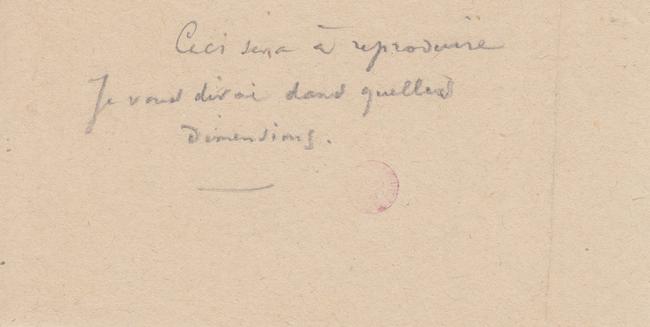 Ceci sera à reproduire
Je vous dirai dans quelles
dimensions.